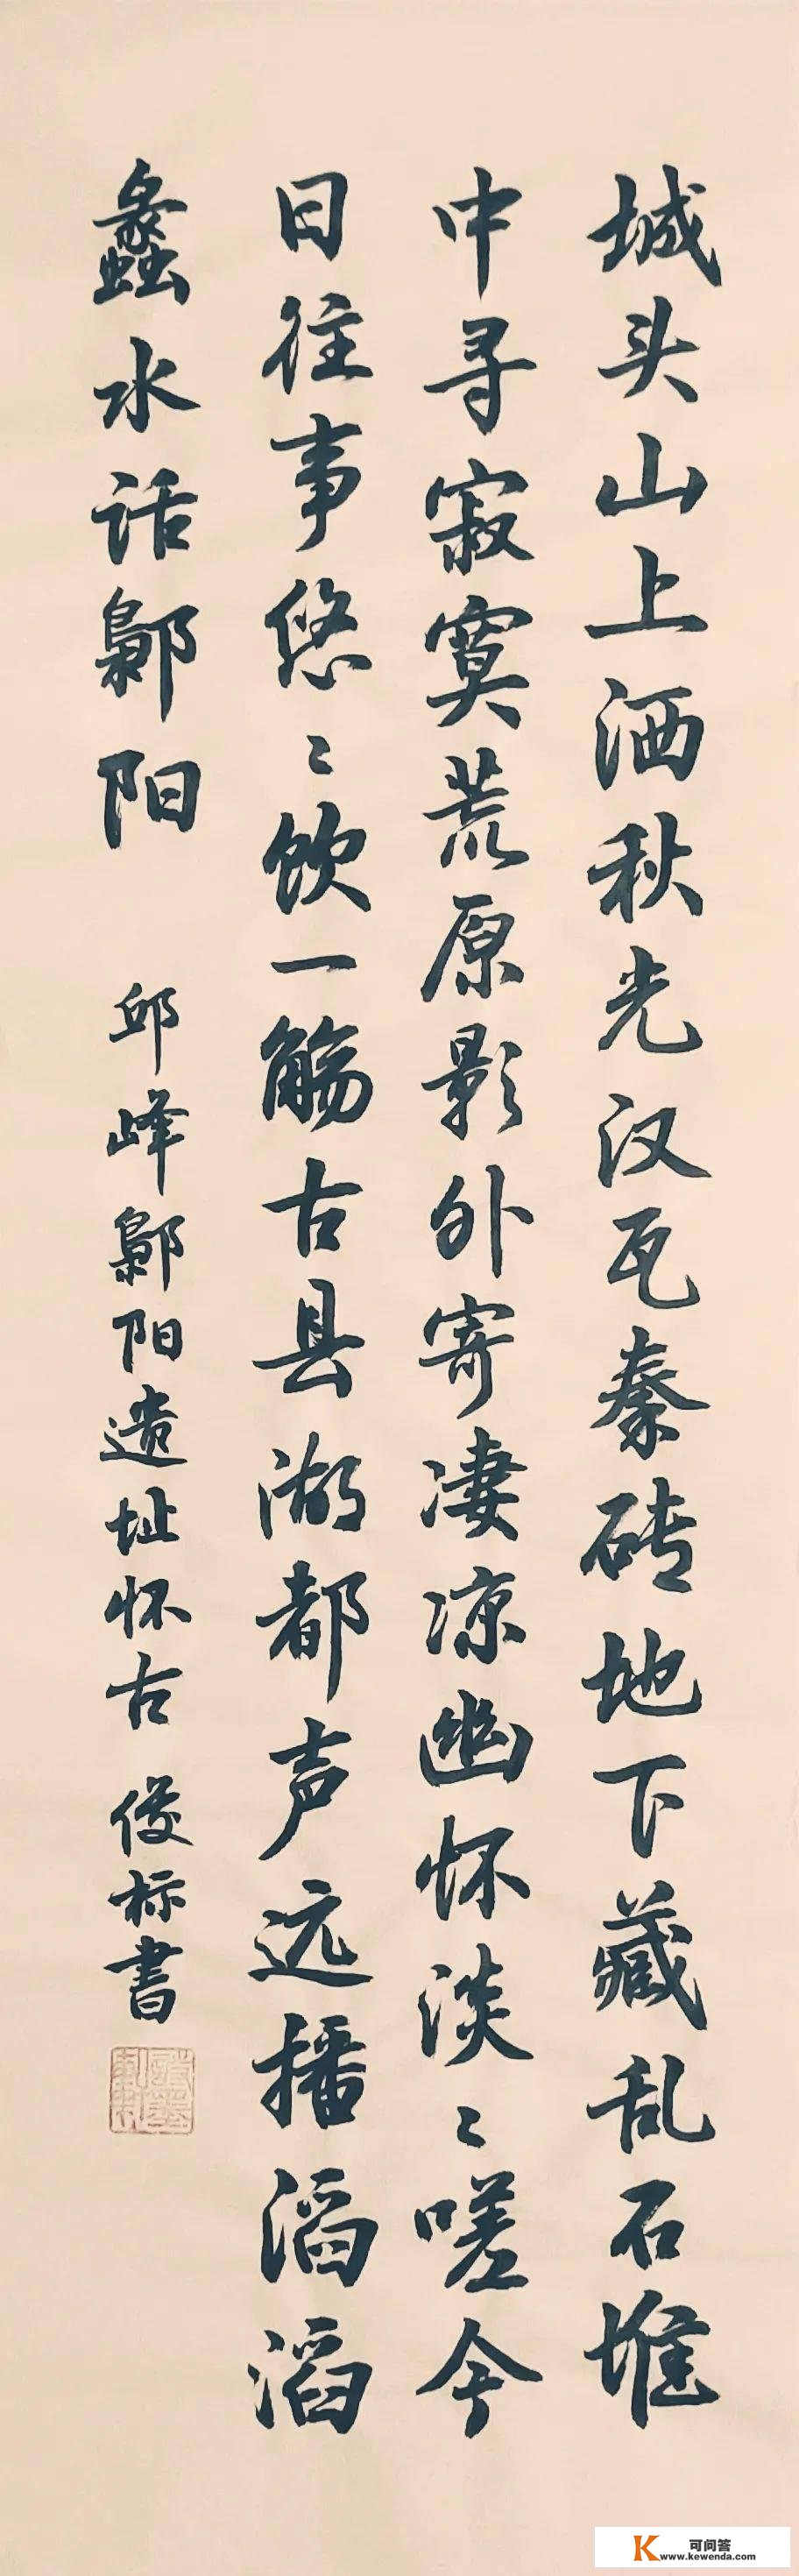 城头山上洒秋光汉瓦秦砖地下藏乱石堆
中寻寂寞荒原影外寄凄凉幽怀淡〻嗟今
日往事悠〻饮一觞古县湖都声远播滔滔
蠡水话鄡阳
邱峰鄡阳遗址怀古 俊标書
可问答
www.kewenda.com